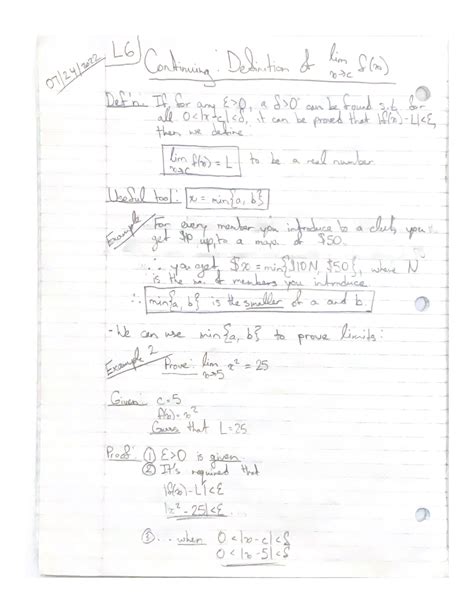 07/24/2022
L6
Continuing: Definition of lim x→c f(x)
Def'n: If, for any ε>0, a δ>0 can be found s.t. for
all 0<|x-c|<δ, it can be proved that |f(x)-L|<ε,
then we define
lim x→c f(x) = L to be a real number.
Useful tool: x = min{a, b}
Example For every member you introduce to a club, you
get $10, up to a max of $50.
∴ you get $x = min{$10N, $50}, where N
is the no. of members you introduce
∴ min{a, b} is the smaller of a and b.
- We can use min{a, b} to prove limits:
Example 2
Prove: lim x→5 x² = 25
Given: c=5
f(x)=x²
Guess that L=25
Proof: ① ε>0 is given
② It's required that
|f(x)-L|<ε
|x²-25|<ε...
③ ... when 0<|x-c|<δ
0<|x-5|<δ